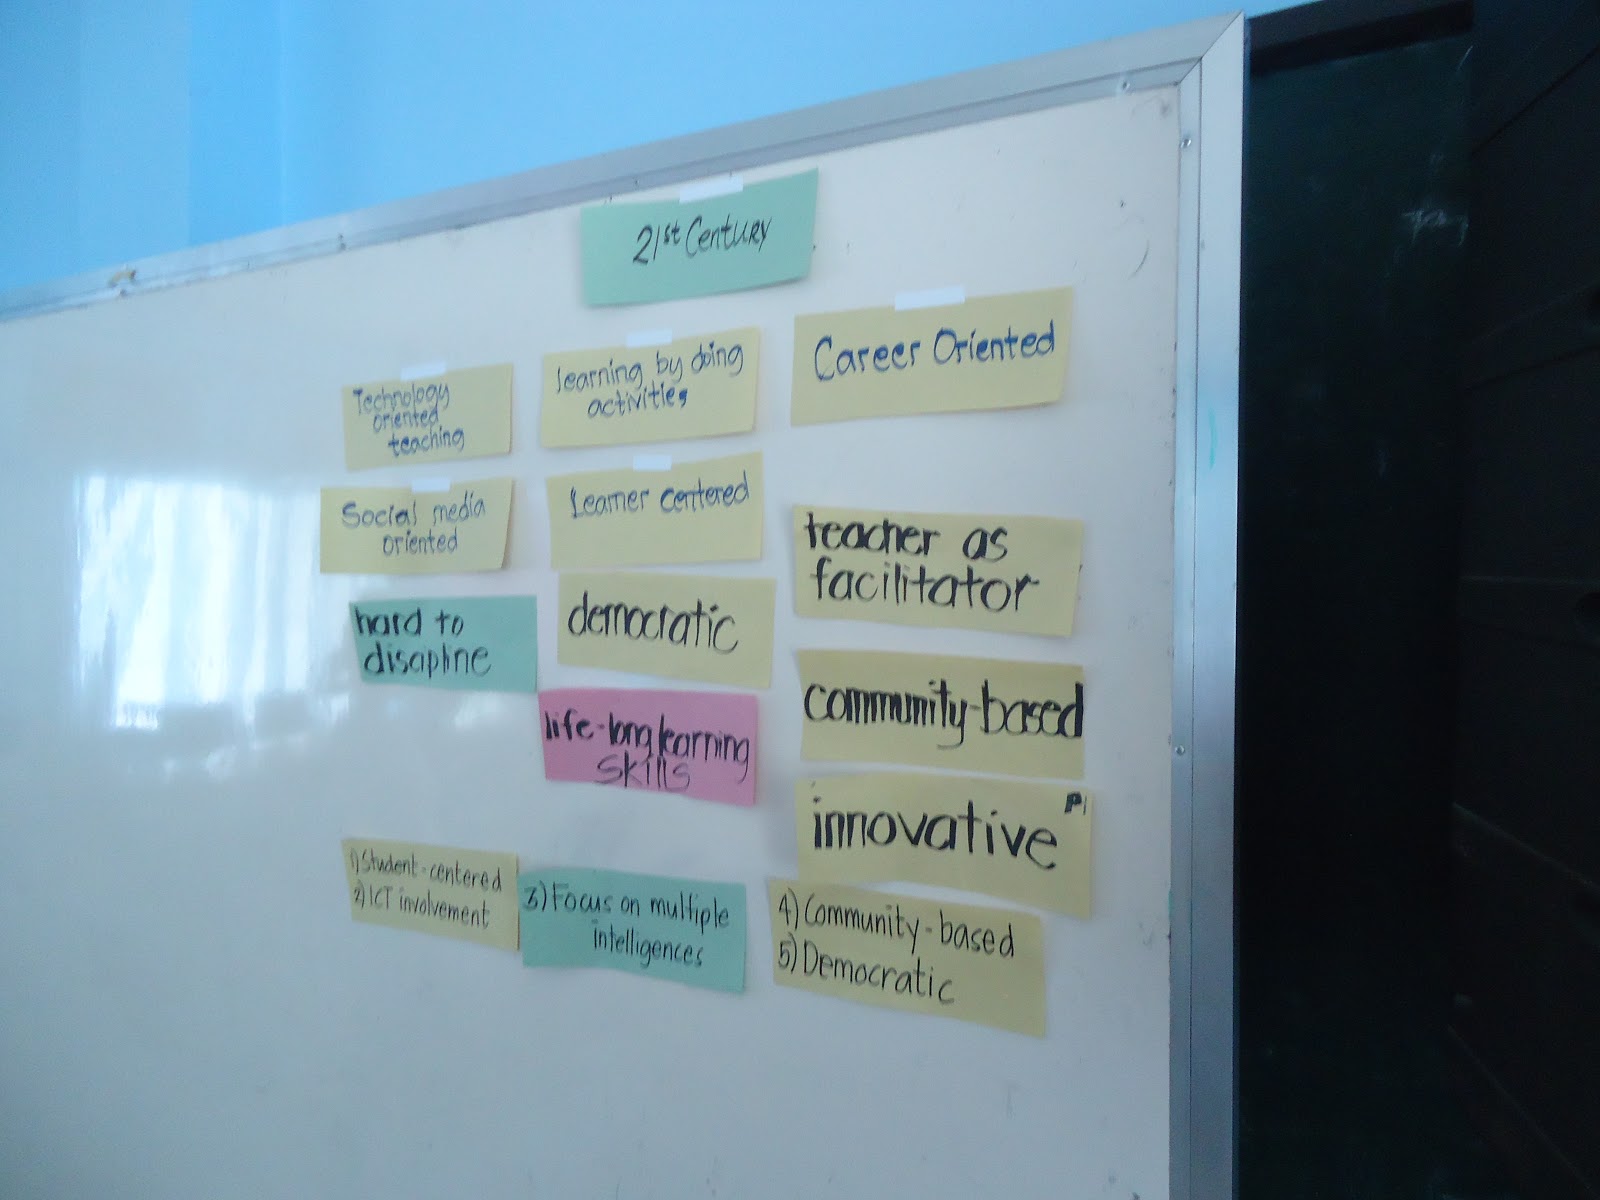 21st Century
Technology
oriented
teaching
learning by doing
activities
Career Oriented
Social media
oriented
Learner centered
teacher as
facilitator
hard to
discipline
democratic
life-long learning
skills
community-based
innovative
1) Student-centered
2) ICT involvement
3) Focus on multiple
intelligences
4) Community-based
5) Democratic